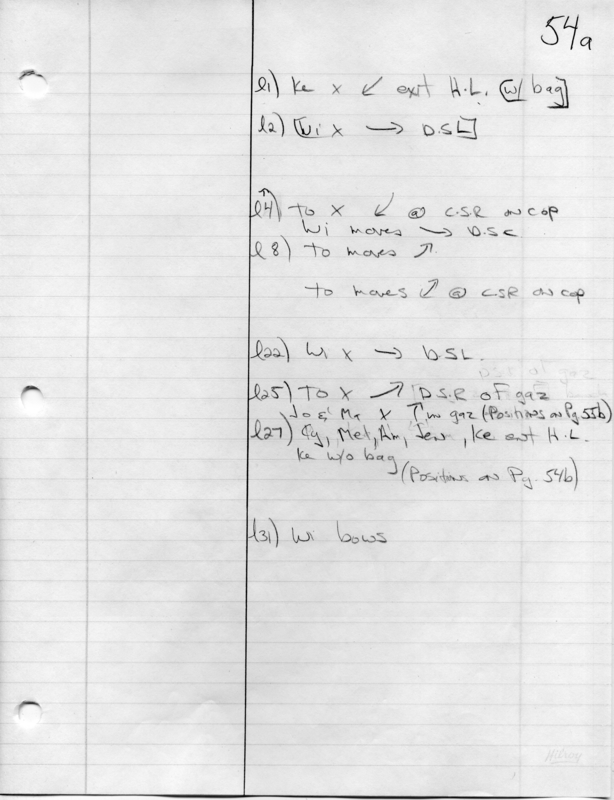 54a
l1) Ke x ↙ exit H.L. [w/ bag]
l2) [Wi x → D.S.L]
l4) To X ↙ @ C.S.R on cop
Wi moves → D.S.C
l8) To moves ↗
To moves ↙ @ CSR on cop
l22) Wi x → D.S.L.
l25) To X ↗ [D.S.R of gaz
Jo & Ma X ↑ in gaz (Positions on Pg 55b)
l27) Cy, Met, Am, Jew, Ke exit H.L.
Ke w/o bag
(Positions on Pg. 54b)
l31) Wi bows
Hilroy